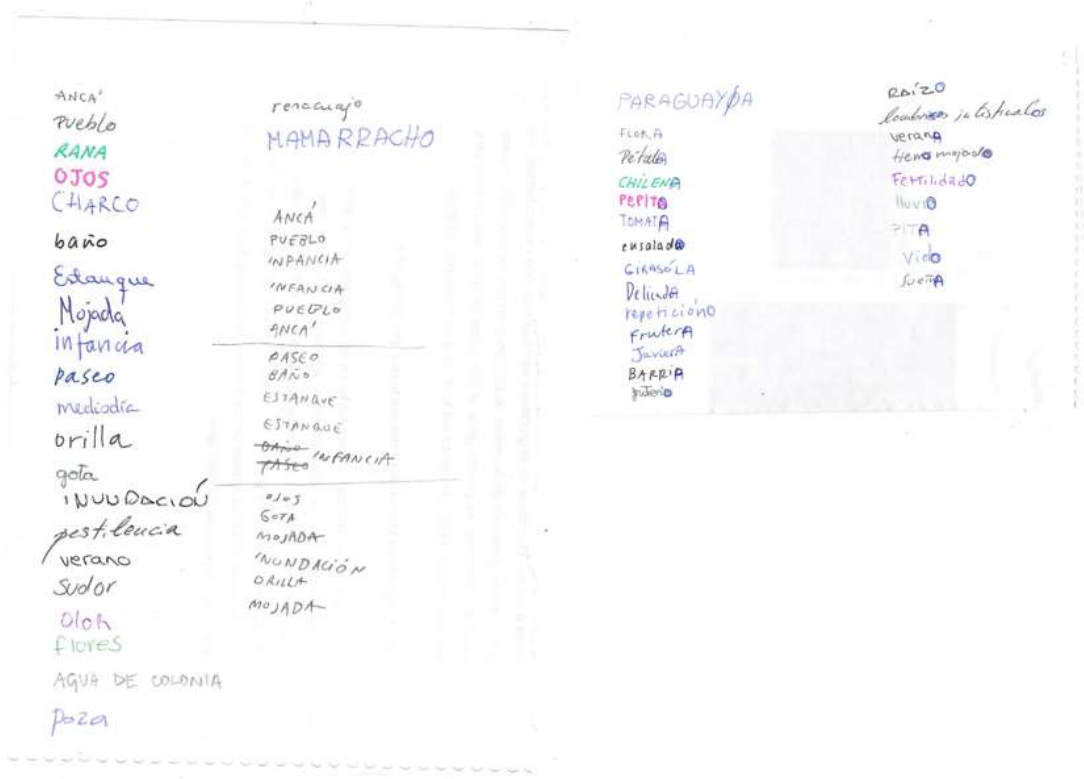 ANCÁ
Pueblo
RANA
OJOS
CHARCO
baño
Estanque
Mojada
infancia
paseo
mediodía
orilla
gota
INUNDACIÓN
pestilencia
verano
sudor
Olor
flores
AGUA DE COLONIA
poza
renacuajo
MAMARRACHO
ANCÁ
PUEBLO
INFANCIA
INFANCIA
PUEBLO
ANCÁ
PASEO
BAÑO
ESTANQUE
ESTANQUE
BAÑO
PASEO INFANCIA
OJOS
GOTA
MOJADA
INUNDACIÓN
ORILLA
MOJADA
PARAGUAYA
FLORA
Pétala
CHILENA
PEPITO
TOMATA
ensalado
GIRASÓLA
Delicada
repeticióno
FruterA
JavierA
BARRIA
RAÍZO
veranA
Heno mojado
Fertilidado
lluvio
PITA
Vido
SueñA